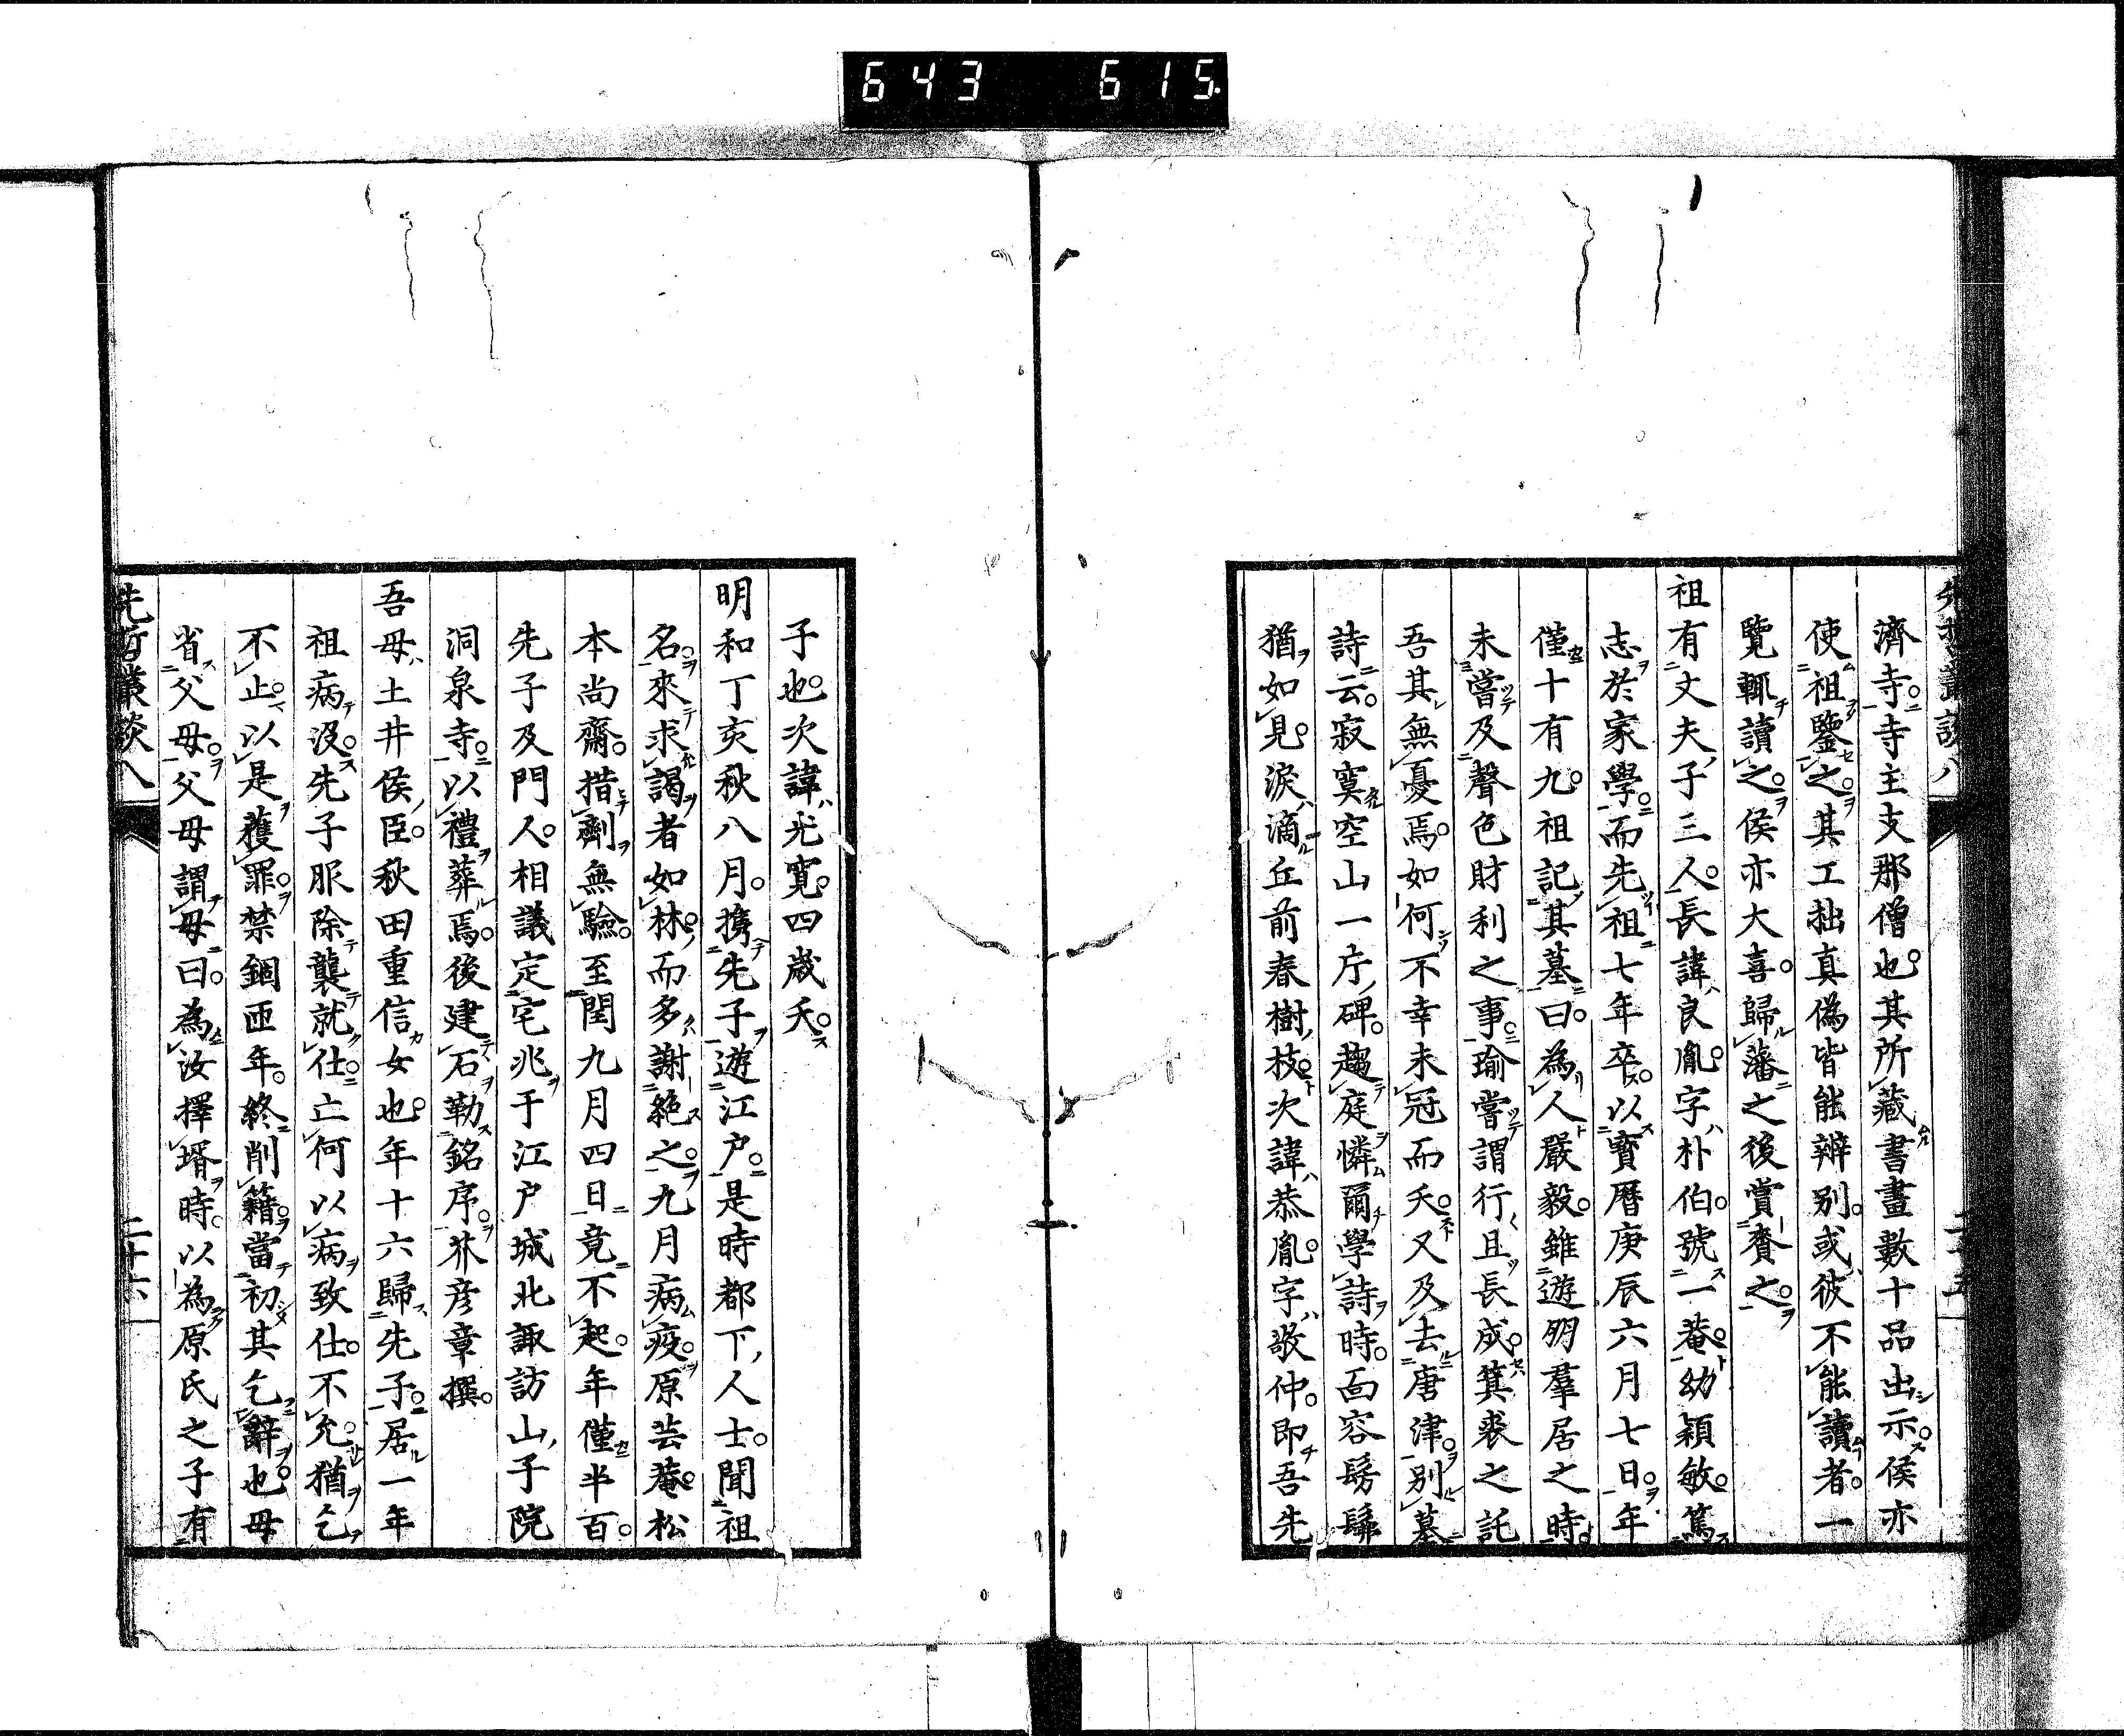 643 615.
濟寺寺主支那僧也其所藏書畫數十品出示侯亦
使祖鑒之其工拙真偽皆能辨別或彼不能讀者一
覽輒讀之侯亦大喜歸藩之後賞賚之
祖有丈夫子三人長諱良胤字朴伯號一菴幼穎敏篤
志於家學而先祖七年卒以寶曆庚辰六月七日年
僅十有九祖記其墓曰為人嚴毅雖遊朋羣居之時
未嘗及聲色財利之事瑜嘗謂行且長成箕裘之託
吾其無憂焉如何不幸未冠而夭又及去唐津別墓
詩云寂寞空山一片碑趨庭憐爾學詩時面容髣髴
猶如見淚滴丘前春樹枝次諱恭胤字敬仲即吾先
子也次諱光寬四歲夭
明和丁亥秋八月携先子遊江戸是時都下人士聞祖
名來求謁者如林而多謝絕之九月病疫原芸菴松
本尚齋措劑無驗至閏九月四日竟不起年僅半百
先子及門人相議定宅兆于江戸城北諏訪山子院
洞泉寺以禮葬焉後建石勒銘序芥彦章撰
吾母土井侯臣秋田重信女也年十六歸先子居一年
祖病沒先子服除襲就仕亡何以病致仕不允猶乞
不止以是獲罪禁錮匝年終削籍當初其乞辭也母
省父母父母謂母曰為汝擇壻時以為原氏之子有
先哲叢談八
二十六